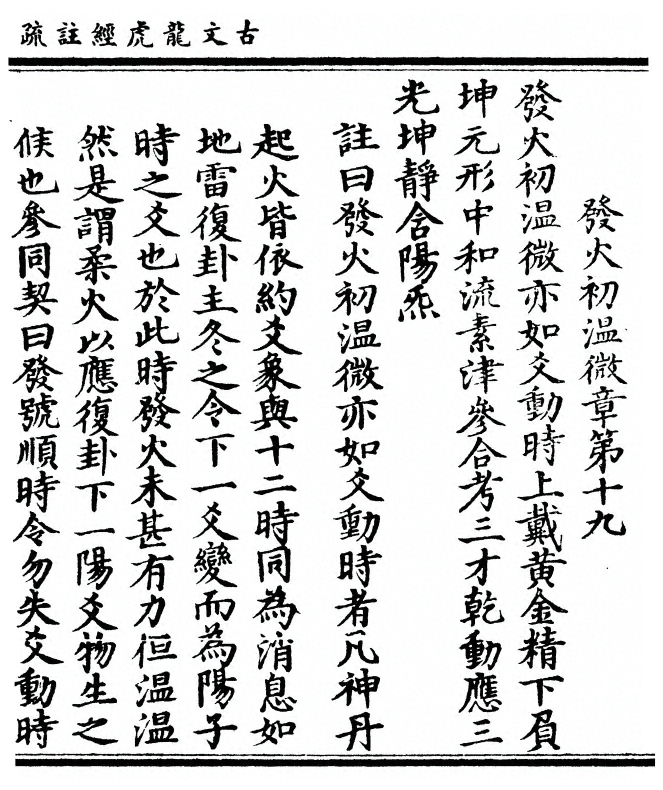 古文龍虎經註疏
發火初温微章第十九
發火初温微亦如爻動時上戴黃金精下負
坤元形中和流素津參合考三才乾動應三
光坤靜含陽炁
註曰發火初温微亦如爻動時者凡神丹
起火皆依約爻象與十二時同為消息如
地雷復卦主冬之令下一爻變而為陽子
時之爻也於此時發火未甚有力但温温
然是謂柔火以應復卦下一陽爻物生之
候也參同契曰發號順時令勿失爻動時